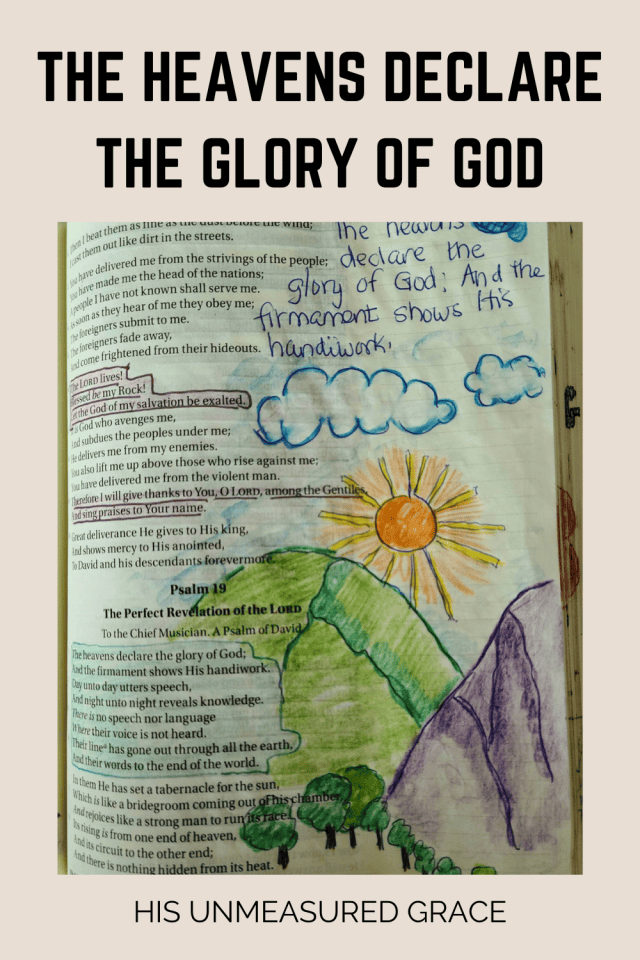 THE HEAVENS DECLARE
THE GLORY OF GOD
Then I beat them as fine as the dust before the wind;
I cast them out like dirt in the streets.
You have delivered me from the strivings of the people;
You have made me the head of the nations;
A people I have not known shall serve me.
As soon as they hear of me they obey me;
The foreigners submit to me.
The foreigners fade away,
And come frightened from their hideouts.
The LORD lives!
Blessed be my Rock!
Let the God of my salvation be exalted.
is God who avenges me,
And subdues the peoples under me;
He delivers me from my enemies.
You also lift me up above those who rise against me;
You have delivered me from the violent man.
Therefore I will give thanks to You, O LORD, among the Gentiles,
And sing praises to Your name.
Great deliverance He gives to His king,
And shows mercy to His anointed,
To David and his descendants forevermore.
Psalm 19
The Perfect Revelation of the LORD
To the Chief Musician. A Psalm of David.
The heavens declare the glory of God;
And the firmament shows His handiwork.
Day unto day utters speech,
And night unto night reveals knowledge.
There is no speech nor language
Where their voice is not heard.
Their line has gone out through all the earth,
And their words to the end of the world.
In them He has set a tabernacle for the sun,
Which is like a bridegroom coming out of his chamber,
And rejoices like a strong man to run its race.
Its rising is from one end of heaven,
And its circuit to the other end;
And there is nothing hidden from its heat.
The heavens
declare the
glory of God; And the
firmament shows His
handiwork.
HIS UNMEASURED GRACE